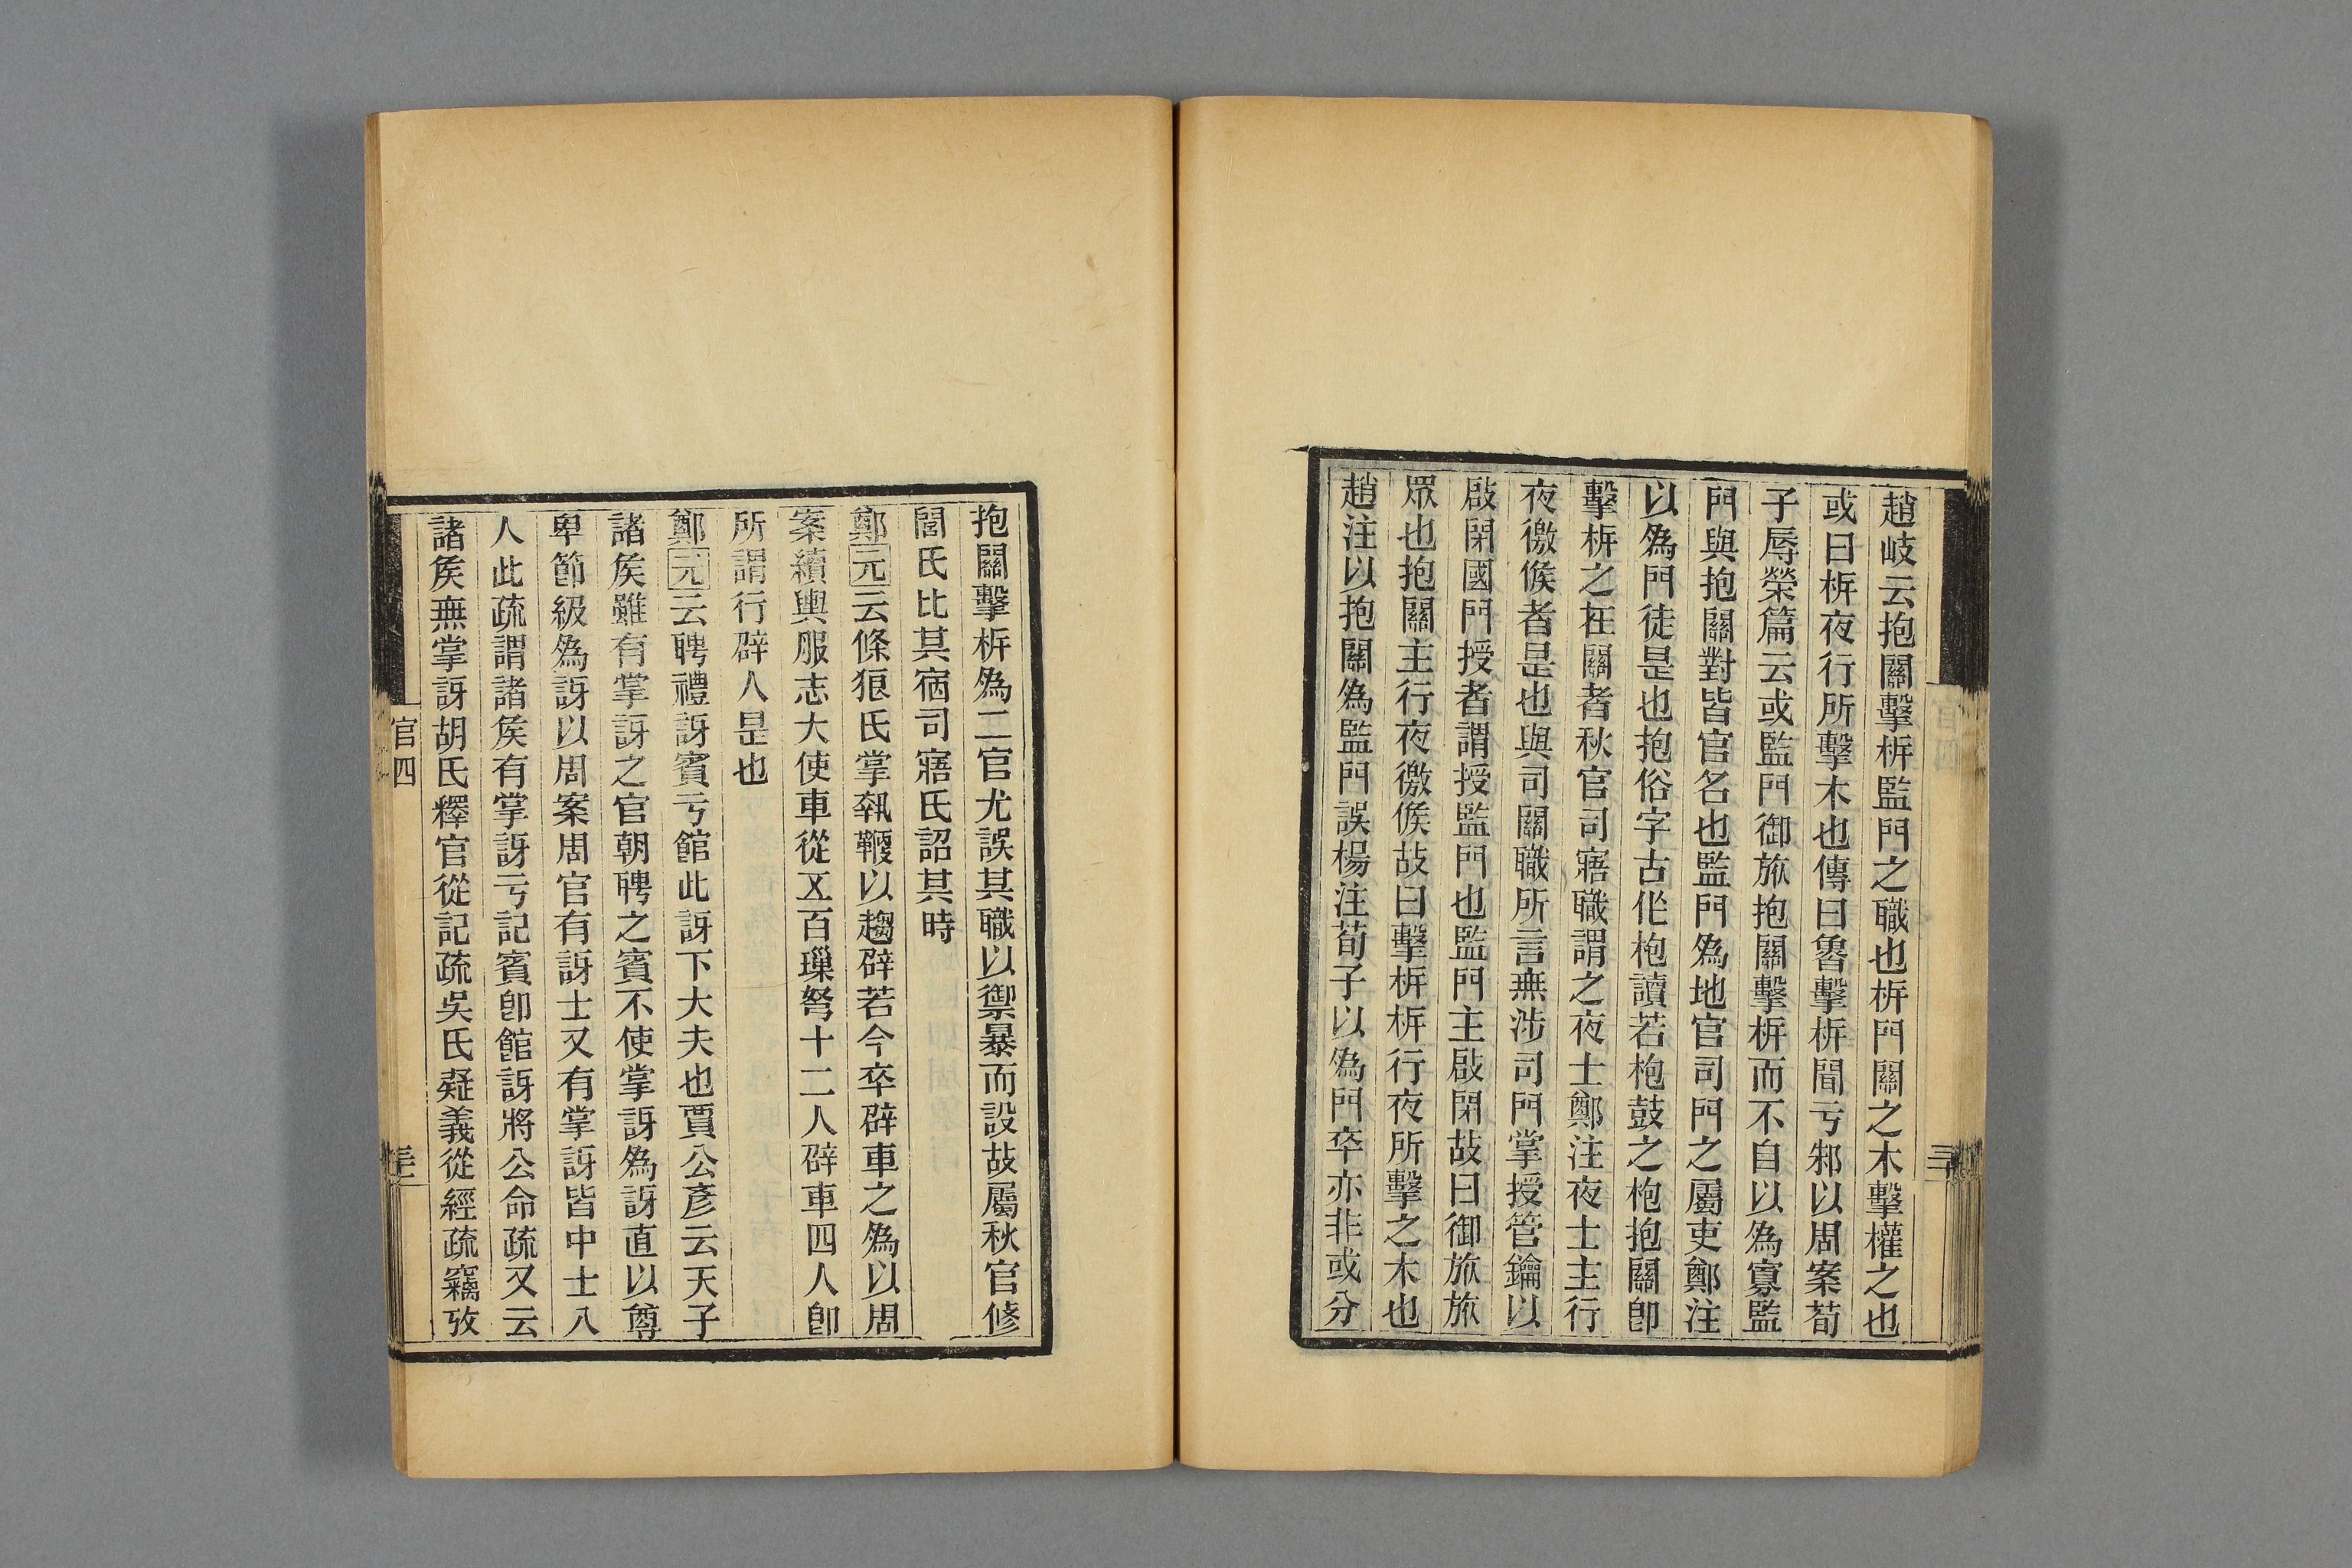 趙岐云抱關擊柝監門之職也柝門關之木擊櫂之也
或曰柝夜行所擊木也傳曰魯擊柝聞亏邾以周案荀
子辱榮篇云或監門御旅抱關擊柝而不自以為寡監
門與抱關對皆官名也監門為地官司門之屬吏鄭注
以為門徒是也抱俗字古作枹讀若枹鼓之枹抱關卽
擊柝之在關者秋官司寤職謂之夜士鄭注夜士主行
夜徼候者是也與司關職所言無涉司門掌授管鑰以
啟閉國門授者謂授監門也監門主啟閉故曰御旅旅
眾也抱關主行夜徼候故曰擊柝柝行夜所擊之木也
趙注以抱關為監門誤楊注荀子以為門卒亦非或分
抱關擊柝為二官尤誤其職以禦暴而設故屬秋官修
閭氏比其宿司寤氏詔其時
鄭元云條狼氏掌執鞭以趨辟若今卒辟車之為以周
案續輿服志大使車從五百璅弩十二人辟車四人卽
所謂行辟人是也
鄭元云聘禮訝賓亏館此訝下大夫也賈公彥云天子
諸矦雖有掌訝之官朝聘之賓不使掌訝為訝直以尊
卑節級為訝以周案周官有訝士又有掌訝皆中士八
人此疏謂諸矦有掌訝亏記賓卽館訝將公命疏又云
諸矦無掌訝胡氏釋官從記疏吳氏疑義從經疏竊攷
官四